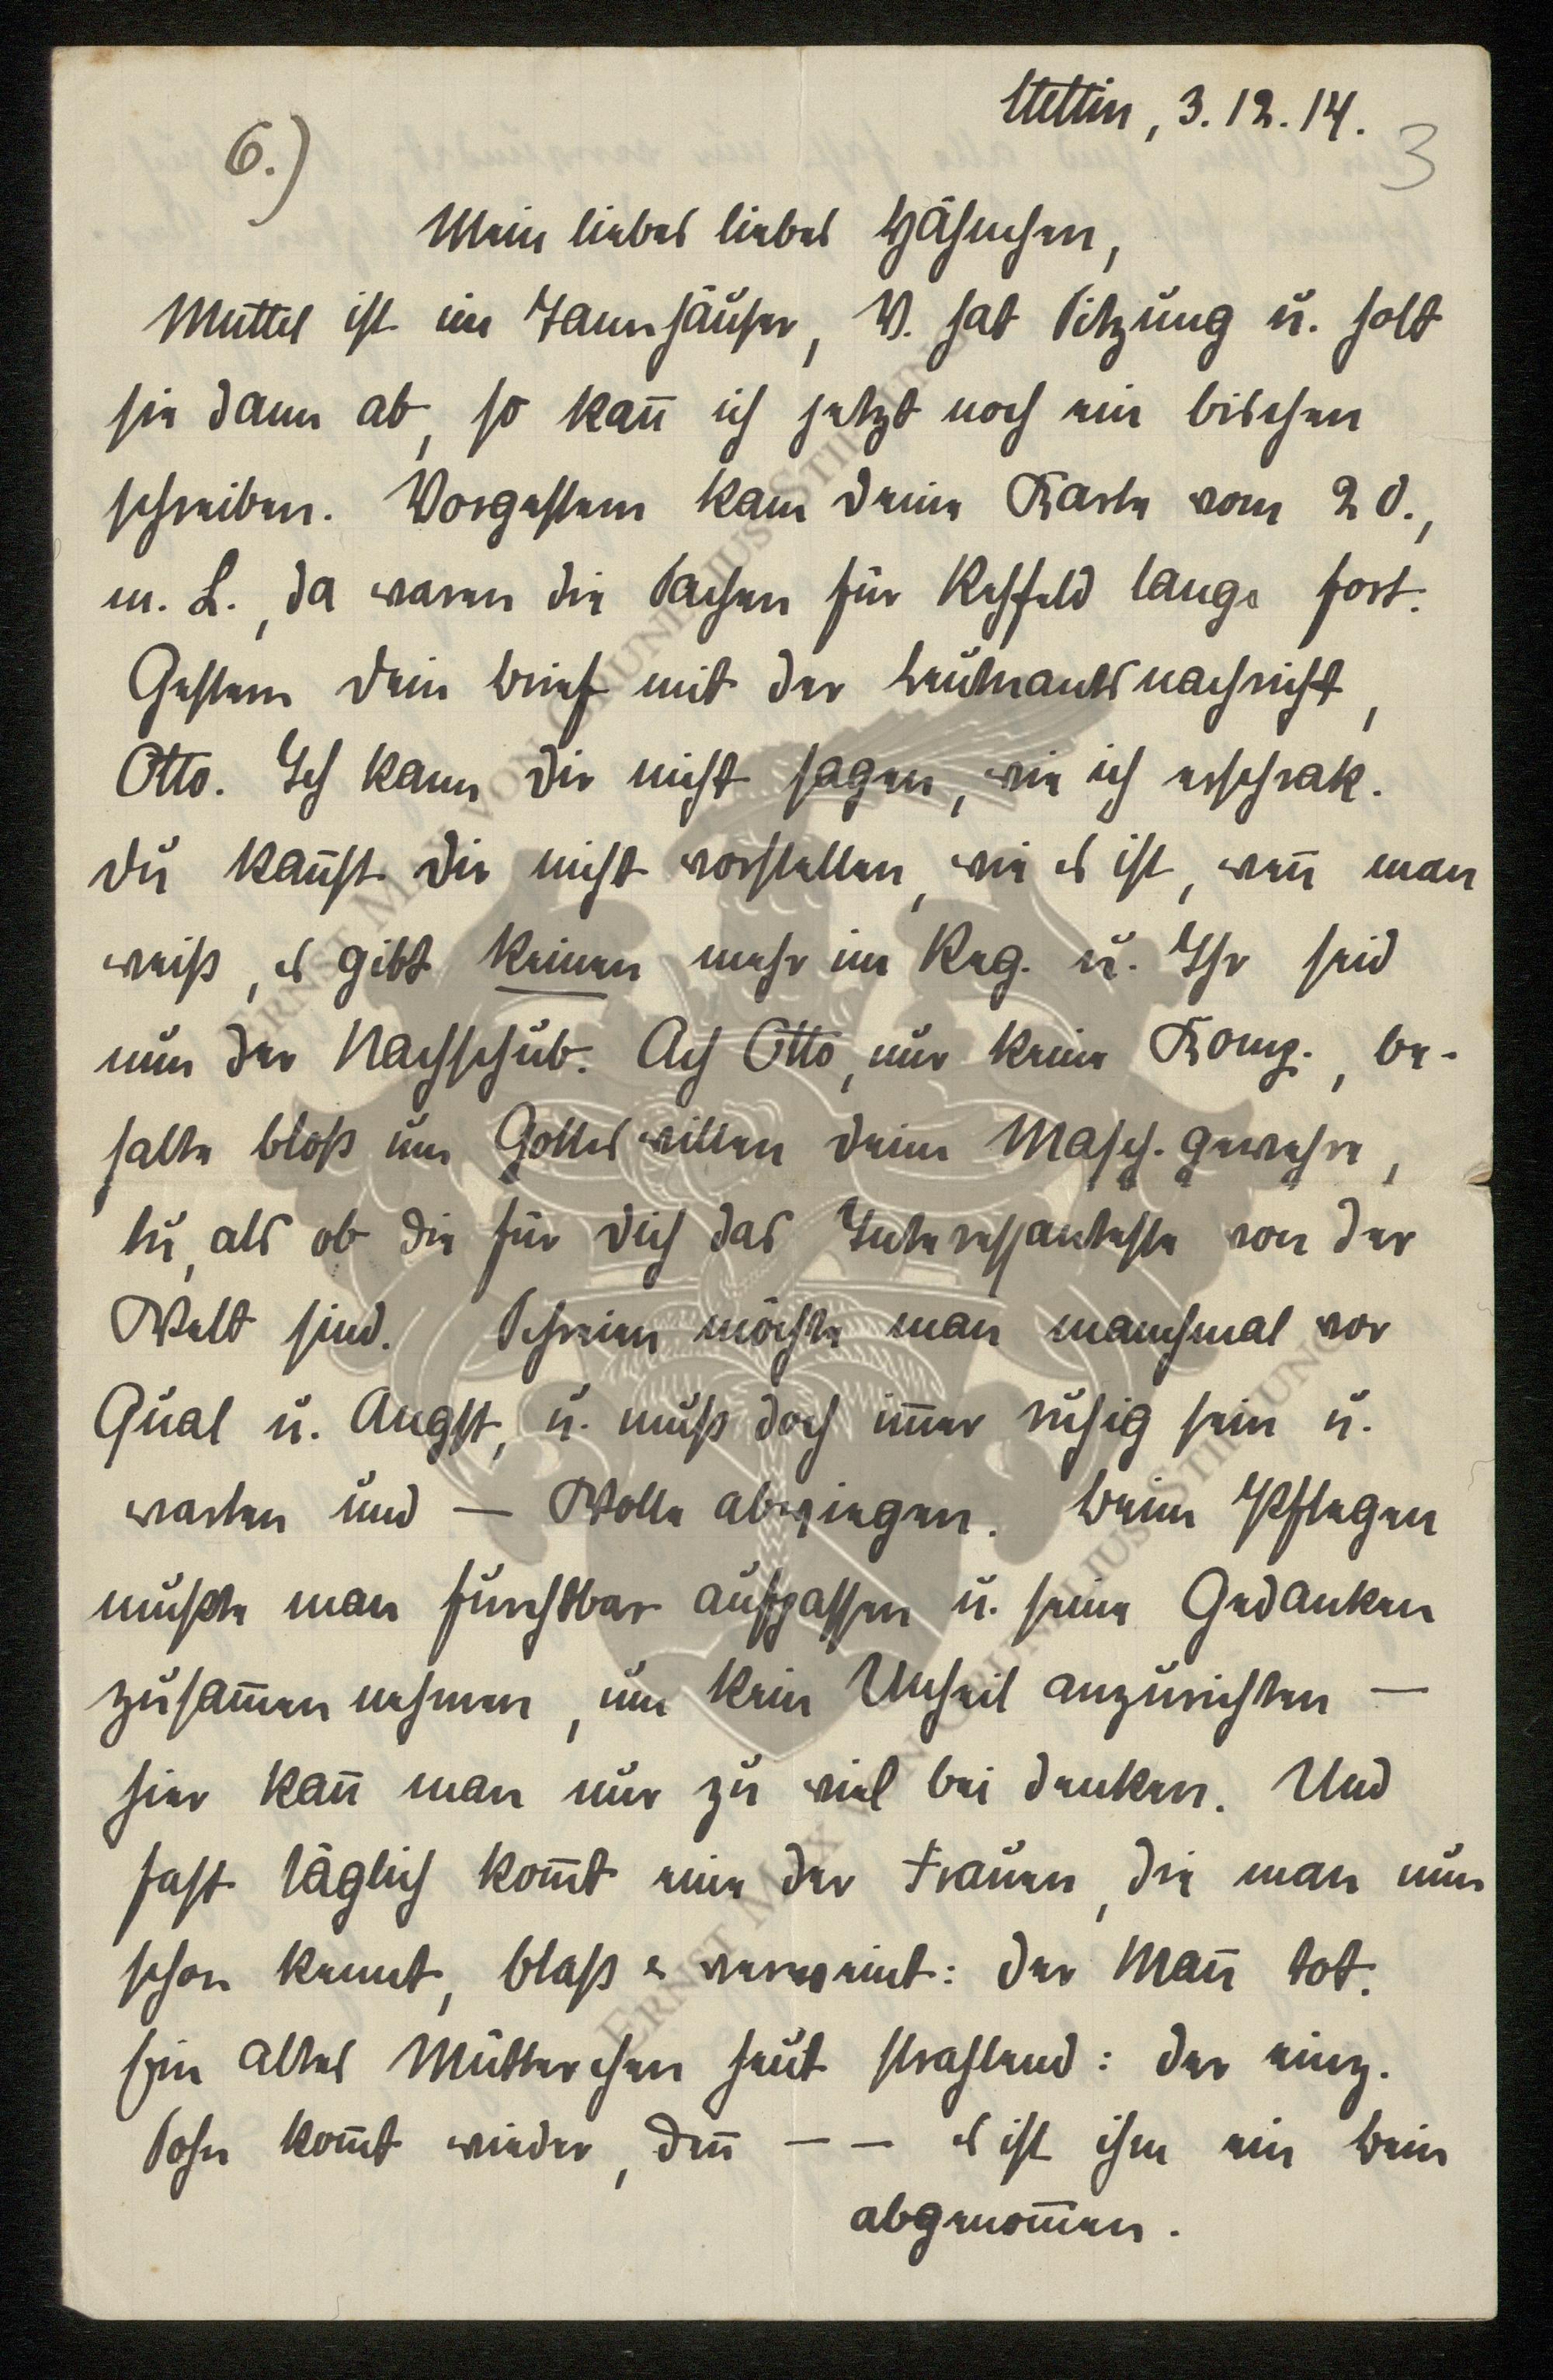 Stettin, 3.12.14.
3
6.)
Mein liebes liebes Hähnchen,
Muttel ist im Tannhäuser, V. hat Sitzung u. holt
sie dann ab, so kan̄ ich jetzt noch ein bischen
schreiben. Vorgestern kam deine Karte vom 20.,
m. L., da waren die Sachen für Rehfeld lange fort.
Gestern dein Brief mit der Leutnantsnachricht,
Otto. Ich kann dir nicht sagen, wie ich erschrak.
Du kan̄st dir nicht vorstellen, wie es ist, wen̄ man
weiß, es gibt keinen mehr im Reg. u. Ihr seid
nun der Nachschub. Ach Otto, nur keine Komp., be-
halte bloß um Gotteswillen deine Masch.gewehre,
tu, als ob die für dich das Interessanteste von der
Welt sind. Schreien möchte man manchmal vor
Qual u. Angst, u. muß doch im̄er ruhig sein u.
warten und — Wolle abwiegen. Beim Pflegen
mußte man furchtbar aufpassen u. seine Gedanken
zusam̄en nehmen, um kein Unheil anzurichten —
hier kan̄ man nur zu viel bei denken. Und
fast täglich kom̄t eine der Frauen, die man nun
schon kennt, blaß & verweint: der Man̄ tot.
Ein altes Mütterchen heut strahlend: der einz.
Sohn kom̄t wieder, den̄ — — es ist ihm ein Bein
abgenom̄en.
ERNST MAX VON GRUNELIUS STIFTUNG
ERNST MAX VON GRUNELIUS STIFTUNG